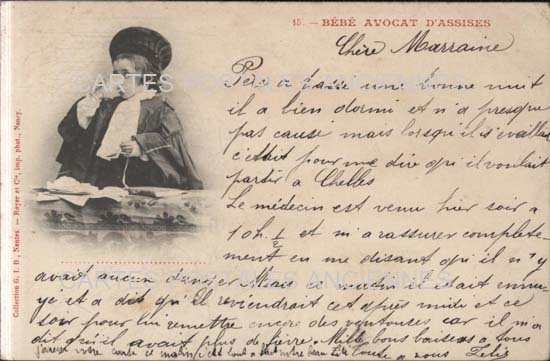 15. - BÉBÉ AVOCAT D'ASSISES
Chère Marraine
Père a passé une bonne nuit
il a bien dormi et n'a presque
pas causé mais lorsqu'il s'evaillait
c'était pour me dire qu'il voulait
partir a Chelles
Le médecin est venu hier soir a
10h. 1/2 et m'a rassurer complete
ment en me disant qu'il n'y
avait aucun danger Mais ce matin était ennu
yé et a dit qu'il reviendrait cet après midi et ce
soir pour lui remettre encore des ventouses car il m'a
dit qu'il avait plus de fièvre. Mille bons baisers a tous
j'envoi votre carte ce matin
a vous Zélis
Collection G. I. D., Nantes. - Royer et Cie, imp. phot., Nancy.
CARTES POSTALES ANCIENNES
CARTES POSTALES ANCIENNES